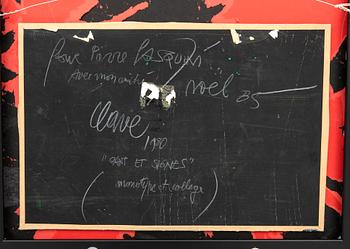 pour Pierre PASQUINI
avec mon amitié
Noël 85
Clavé
1980
"GANT ET SIGNES"
(monotype et collage)